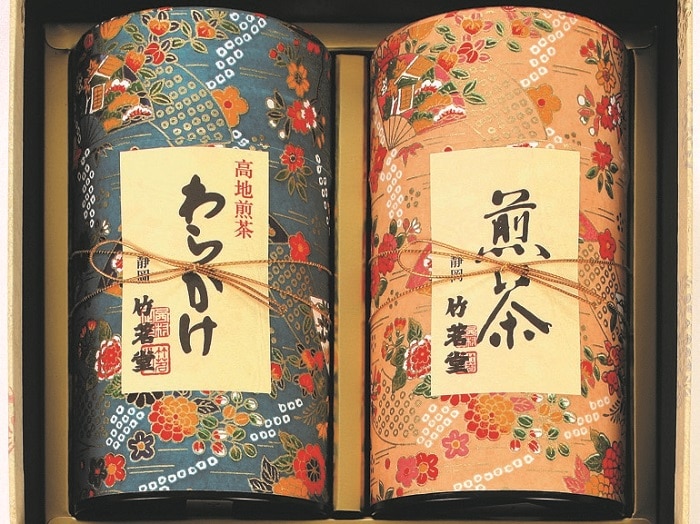 高地煎茶
わらかけ
静岡
竹茗堂
煎茶
静岡
竹茗堂